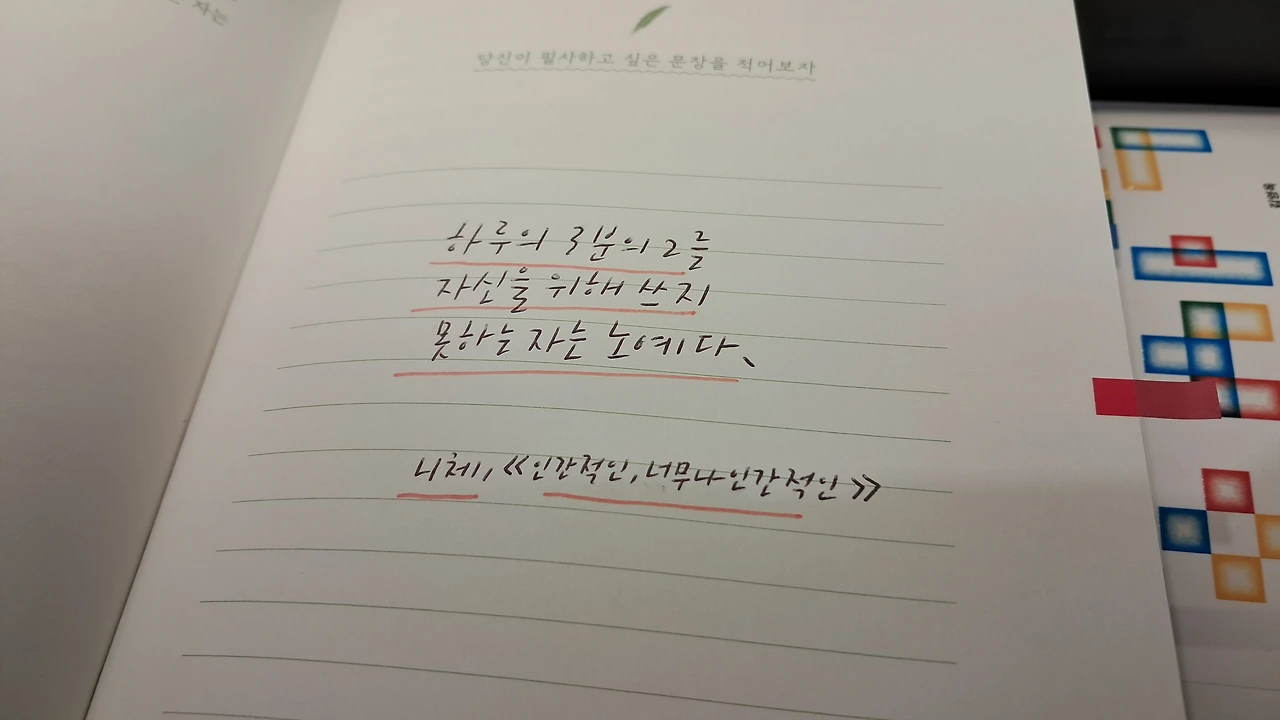 자는
당신이 필사하고 싶은 문장을 적어보자
하루의 3분의 2를
자신을 위해 쓰지
못하는 자는 노예다.
니체, 《인간적인, 너무나 인간적인》